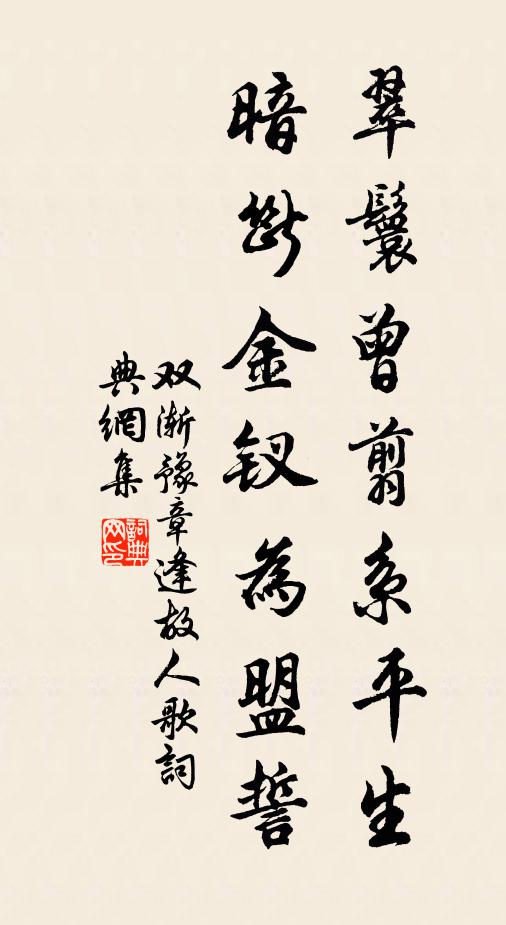 翠鬟曾翦系平生
暗断金钗為盟誓
双渐豫章逢故人歌詞
典網集
詞典網印